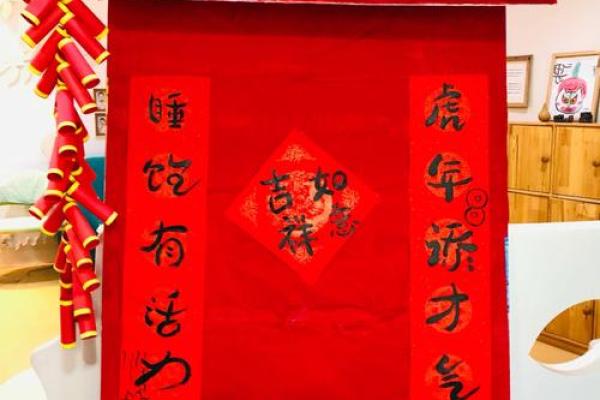 虎年添才气
如意
吉祥
睡饱有活力